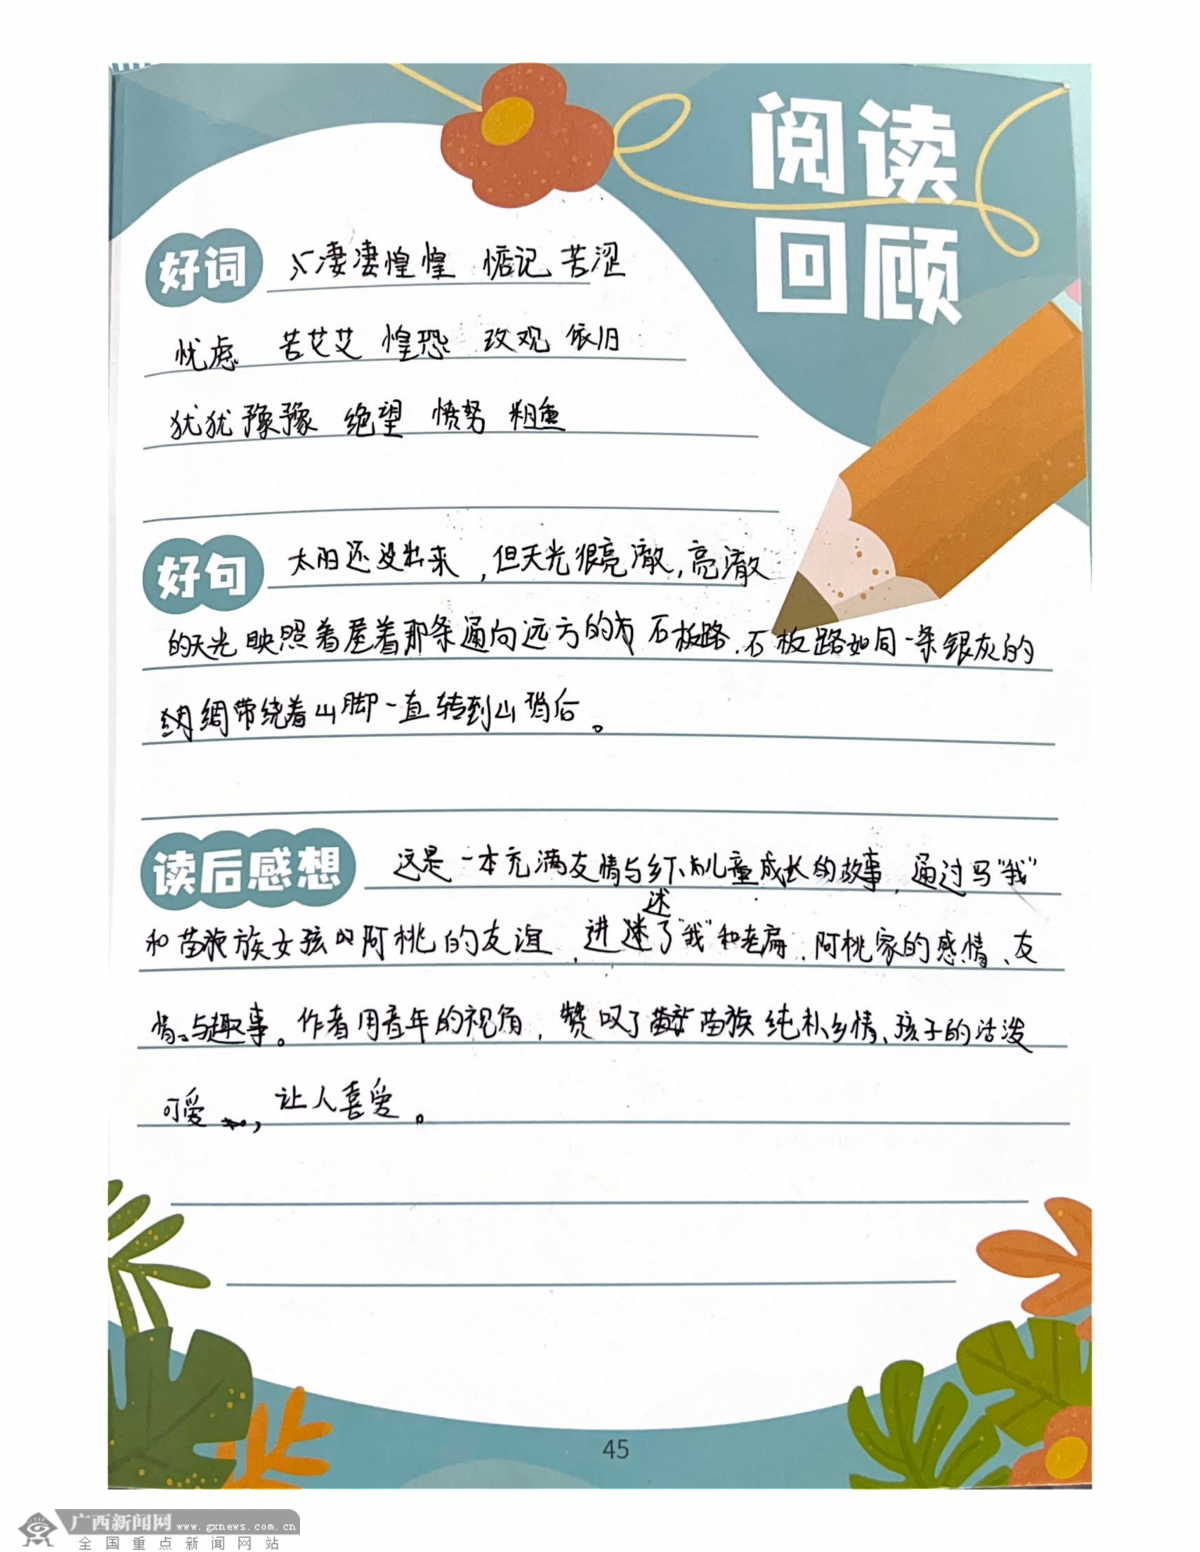 阅读
回顾
好词 凄凄惶惶 惦记 苦涩
忧虑 苦艾艾 惶恐 改观 依旧
犹犹豫豫 绝望 愤努 粗鱼
好句 太阳还没出来，但天光很亮澈，亮澈
的天光映照着屋着那条通向远方的 石板路，石板路如同一条银灰的
绸带绕着山脚一直转到山背后。
读后感想 这是一本充满友情与乡下儿童成长的故事，通过写“我”
述
和苗族女孩 阿桃的友谊，进 了“我”和老扁、阿桃家的感情、友
情、与趣事。作者用童年的视角，赞叹了 苗族纯朴乡情、孩子的活泼
可爱，让人喜爱。
45
广西新闻网 www.gxnews.com.cn
全国重点新闻网站